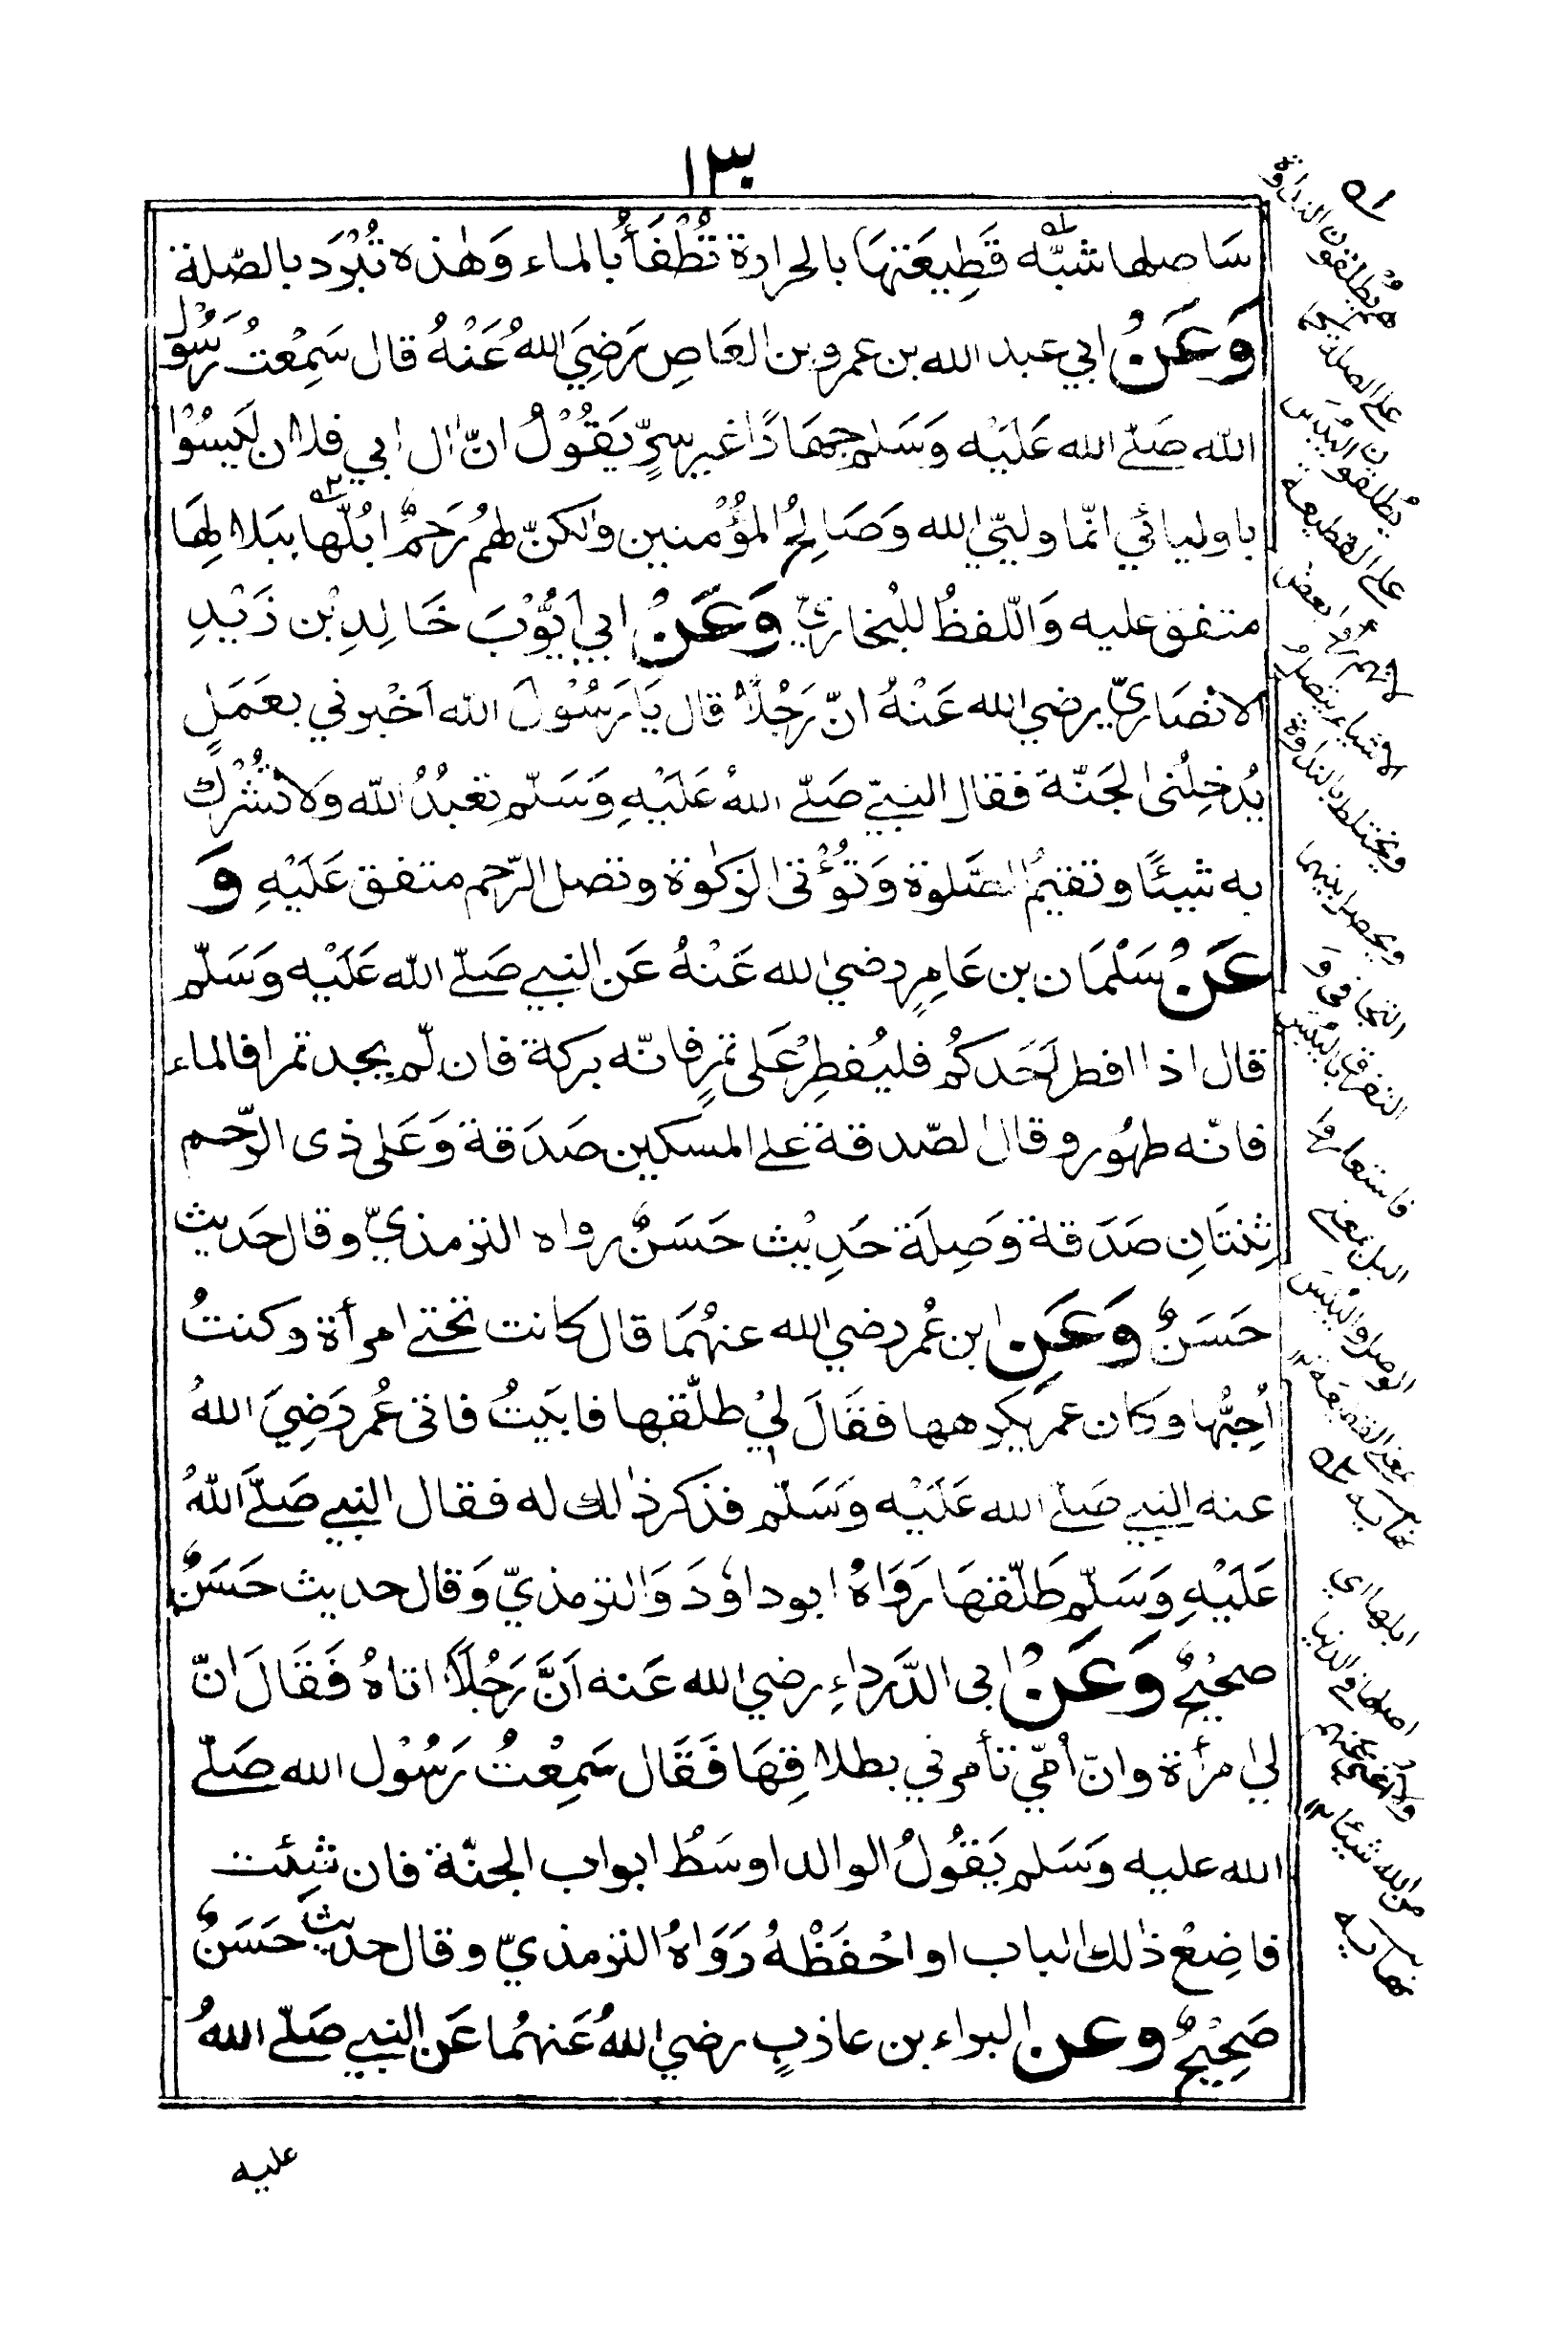 ١٣٠
سَاصلها شبّه قَطِيعَتهَا بالحرارة تُطْفَأُ بالماء وَهٰذه تُبْرَد بالصّلة
وَعَنْ ابي عبد الله بن عمرو بن العَاصِ رَضِيَ اللهُ عَنْهُ قال سَمِعْتُ رَسُوْل
الله صَلّى الله عَلَيْه وَسَلم جِهَادًا غير سِرٍّ يَقُوْلُ انّ اٰل ابي فلان لَيسُوْا
باوليائي انّما وليّي الله وَصَالِحُ المُؤْمنين ولكنّ لهُم رَحِمٌ ابُلّها ببَلالِهَا
متفق عليه وَاللّفظُ للبُخاريّ وَعَنْ ابي اَيُّوْبَ خَالِدِ بْن زَيْدِ
الانْصَاريّ رضي الله عَنْهُ انّ رَجُلًا قال يَا رَسُوْلَ الله اَخْبرني بعَمَلٍ
يُدخِلُنى الجَنّة فقال النبيّ صَلّى اللهُ عَلَيْهِ وَسَلّم تعبُدُ الله وَلا تُشْرك
به شيئًا وتقيمُ الصَّلوة وَتُؤْتى الزكوٰة وتصل الرّحم متفق عَلَيْهِ وَ
عَنْ سَلْمَان بن عَامِرٍ رضي الله عَنْهُ عَن النبي صَلّى الله عَلَيْه وَسَلّم
قال اذا افطر اَحَدكُم فليُفطِرْ عَلى تمرٍ فانّه بركة فان لّم يجد تمرا فالماء
فانّه طهُور وقال الصّدقة على المسكين صَدَقة وَعَلى ذى الرّحم
ثِنتَانِ صَدَقة وَصِلَة حَدِيْث حَسَنٌ رواه الترمذيّ وقال حَديث
حَسَنٌ وَعَنِ ابن عُمر رضي الله عنهُمَا قال كانت تحتى امرأة وكنتُ
اُحِبُّها وكان عمر يكرهها فقَالَ لِيْ طلّقها فابَيتُ فاتى عُمر رَضِيَ اللهُ
عنه النبي صَلّى الله عَلَيْه وَسَلّم فذكر ذٰلك له فقال النبي صَلَّى اللهُ
عَلَيْهِ وَسَلّم طَلّقهَا رَوَاهُ ابو داوٗدَ وَالترمذيّ وَقال حديث حَسَنٌ
صحيْحٌ وَعَنْ ابى الدَّرداءِ رضي الله عَنه اَنَّ رَجُلًا اتاهُ فَقَالَ انّ
لي امرأة وانّ اُمّي تأمرني بطلاقِهَا فَقَال سَمِعْتُ رَسُوْل الله صَلّى
الله عليه وَسَلم يَقُولُ الوالد اوسَطُ ابواب الجنّة فان شِئت
فاضِعْ ذٰلك الباب او احْفَظْهُ رَوَاهُ الترمذيّ وقال حديث حَسَنٌ
صَحِيْحٌ وعن البراء بن عاذبٍ رضي اللهُ عَنهُما عَن النبي صَلّى اللهُ
عليه
هم يُطلقون النداوة
على الصلة كما
يُطلقون اليُبْس
على القطيعة
لانهم لما راوا بعض
الاشياء يتصل
ويختلط بالنداوة
ويحصل بينهما
التجافى و
التفرق باليُبس
فاستعاروا
البل بمعنى
الوصل واليُبْسَ
بمعنى القطيعة
نهايه
ابلها اى
اصلها فى الدنيا
ولا اغنى عنهم
من الله شيئًا
نهايه